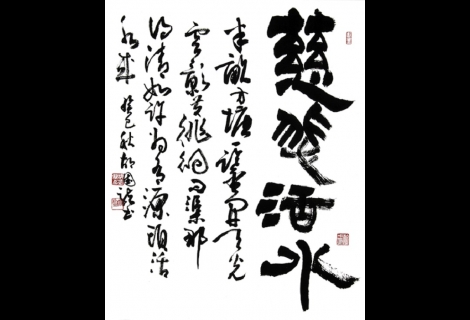 慈悲活水
半畝方塘一鑒開天光
雲影共徘徊問渠那
得清如許為有源頭活
水來 癸巳秋 國書